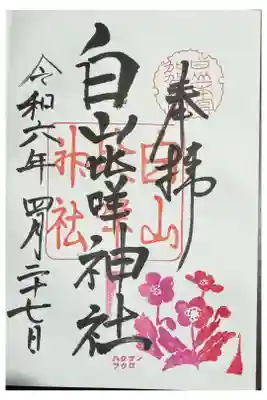 奉拝
白山比咩神社
令和六年 四月二十七日
白山
神社
ハクサン
フウロ